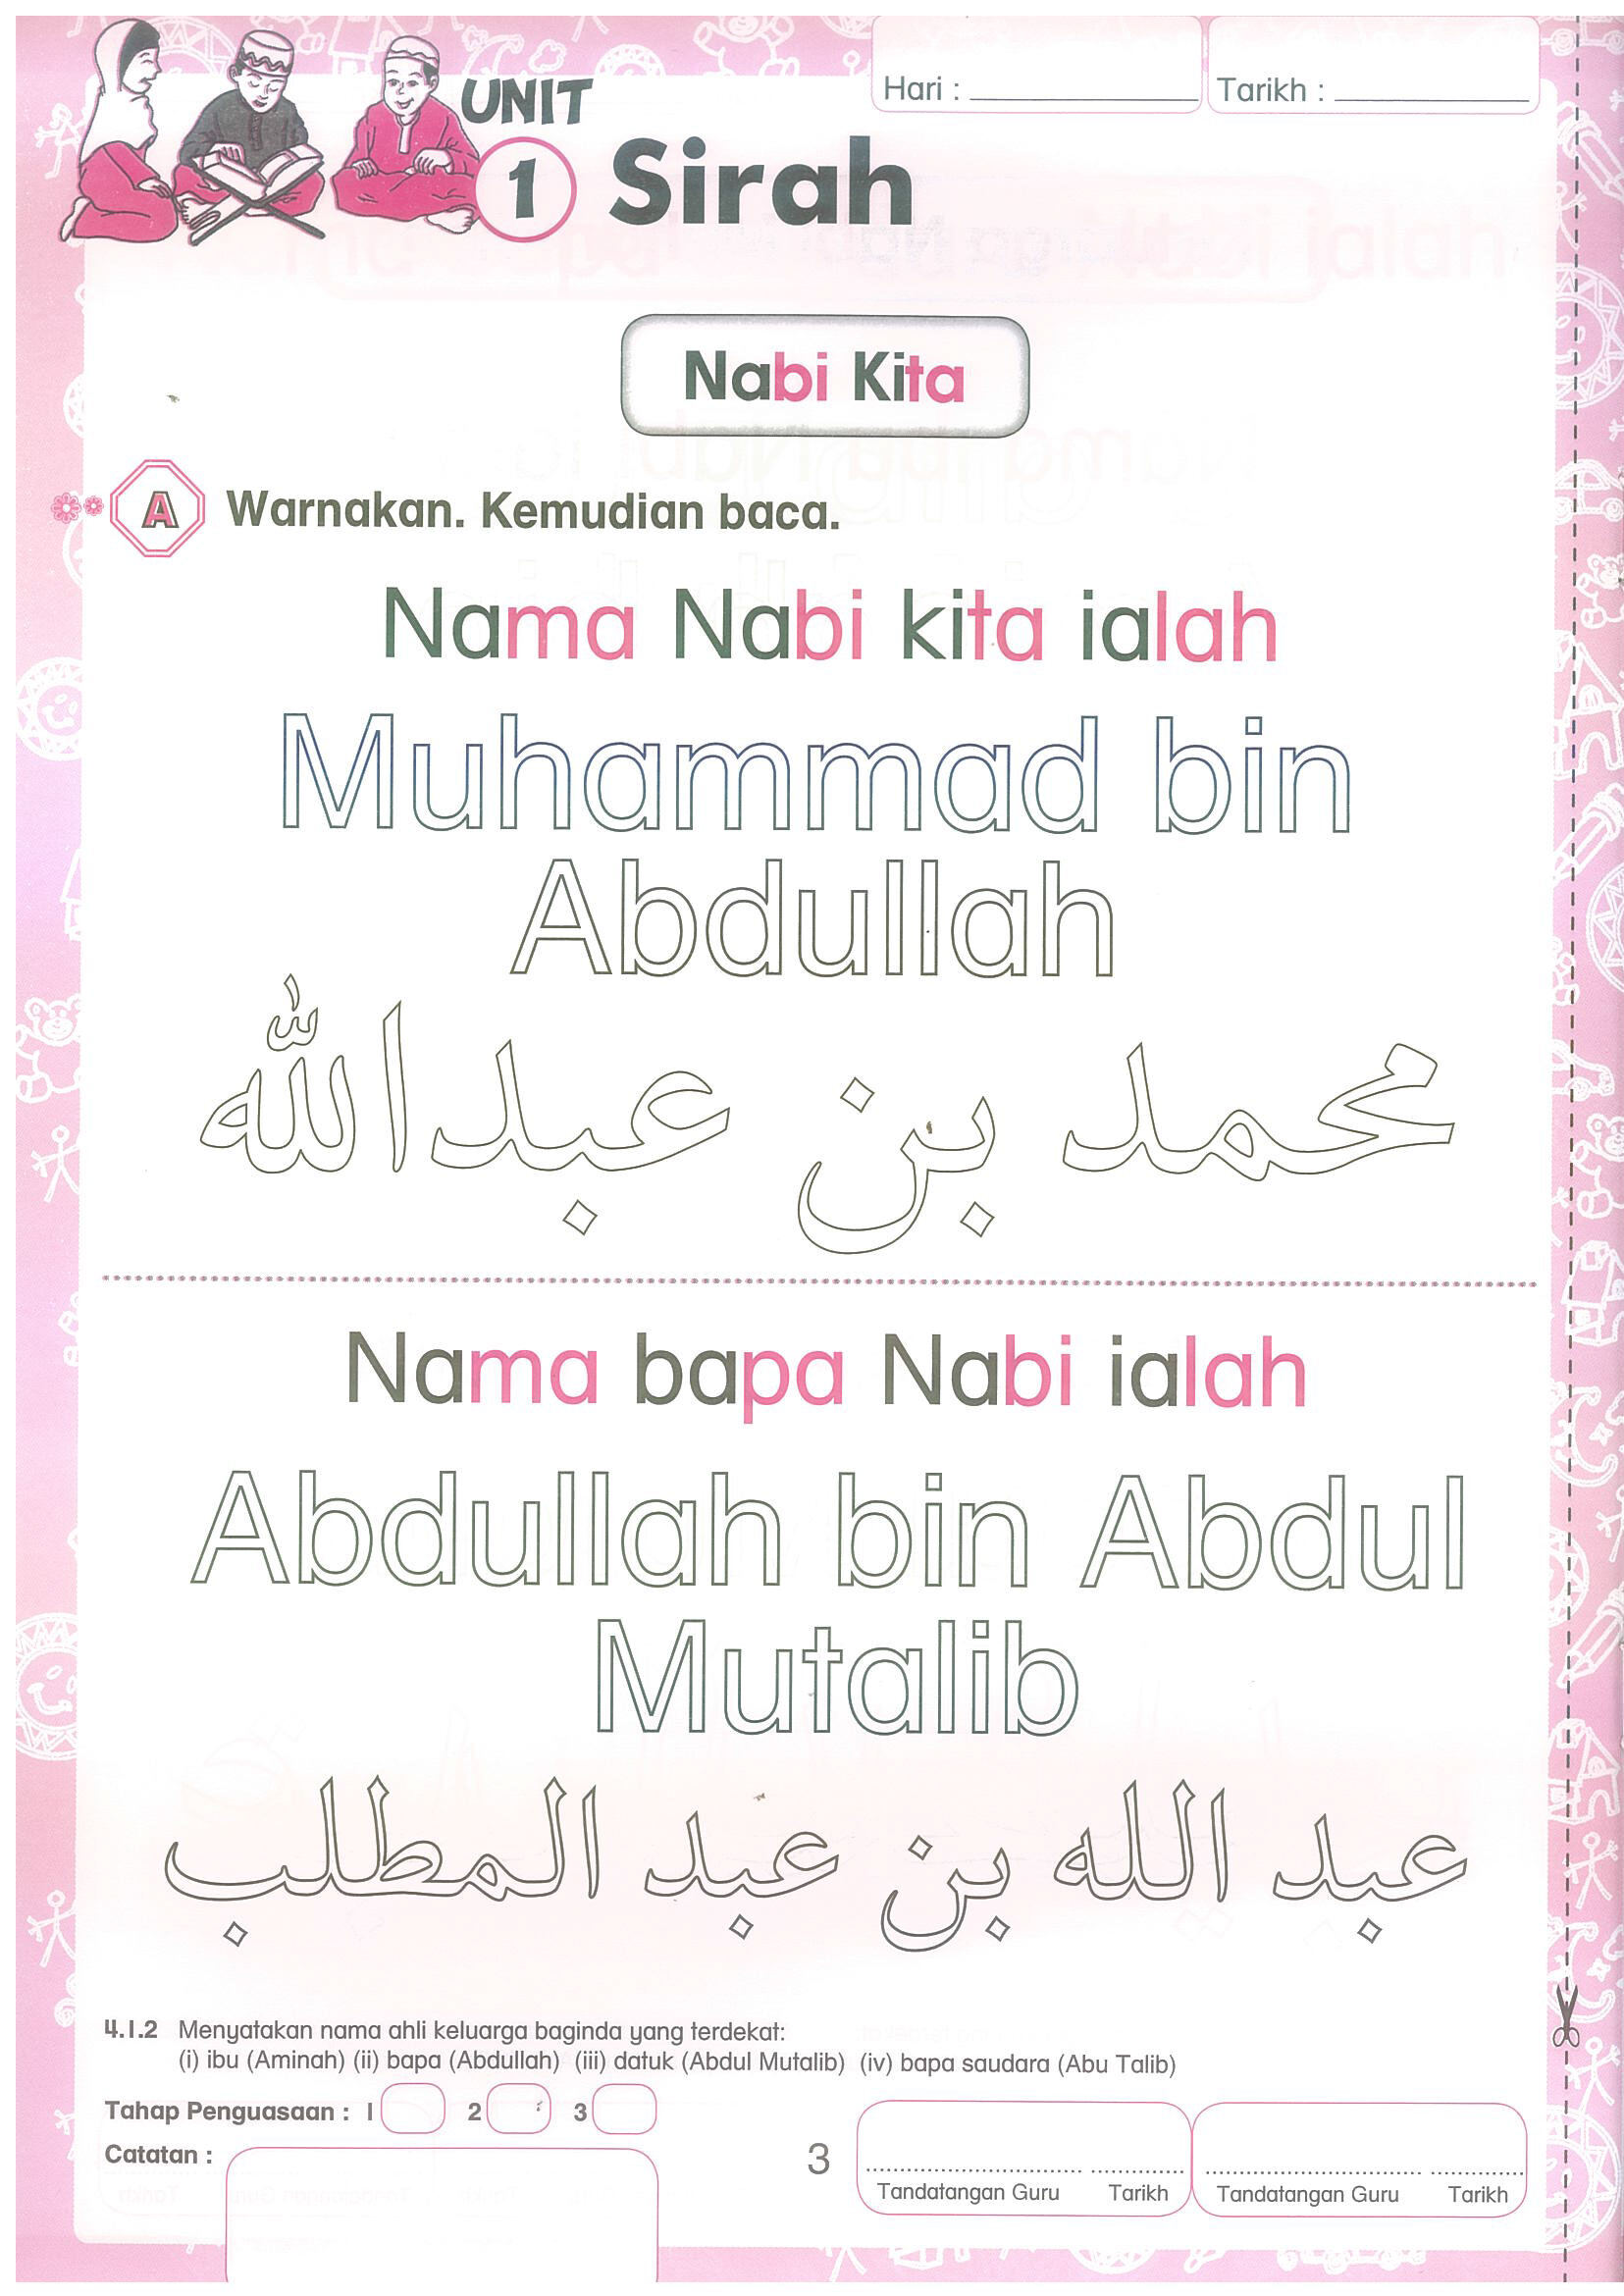 Hari :
Tarikh :
UNIT
1 Sirah
Nabi Kita
A Warnakan. Kemudian baca.
Nama Nabi kita ialah
Muhammad bin
Abdullah
محمد بن عبدالله
Nama bapa Nabi ialah
Abdullah bin Abdul
Mutalib
عبد الله بن عبد المطلب
4.1.2 Menyatakan nama ahli keluarga baginda yang terdekat:
(i) ibu (Aminah) (ii) bapa (Abdullah) (iii) datuk (Abdul Mutalib) (iv) bapa saudara (Abu Talib)
Tahap Penguasaan : 1 2 3
Catatan :
3
Tandatangan Guru Tarikh
Tandatangan Guru Tarikh